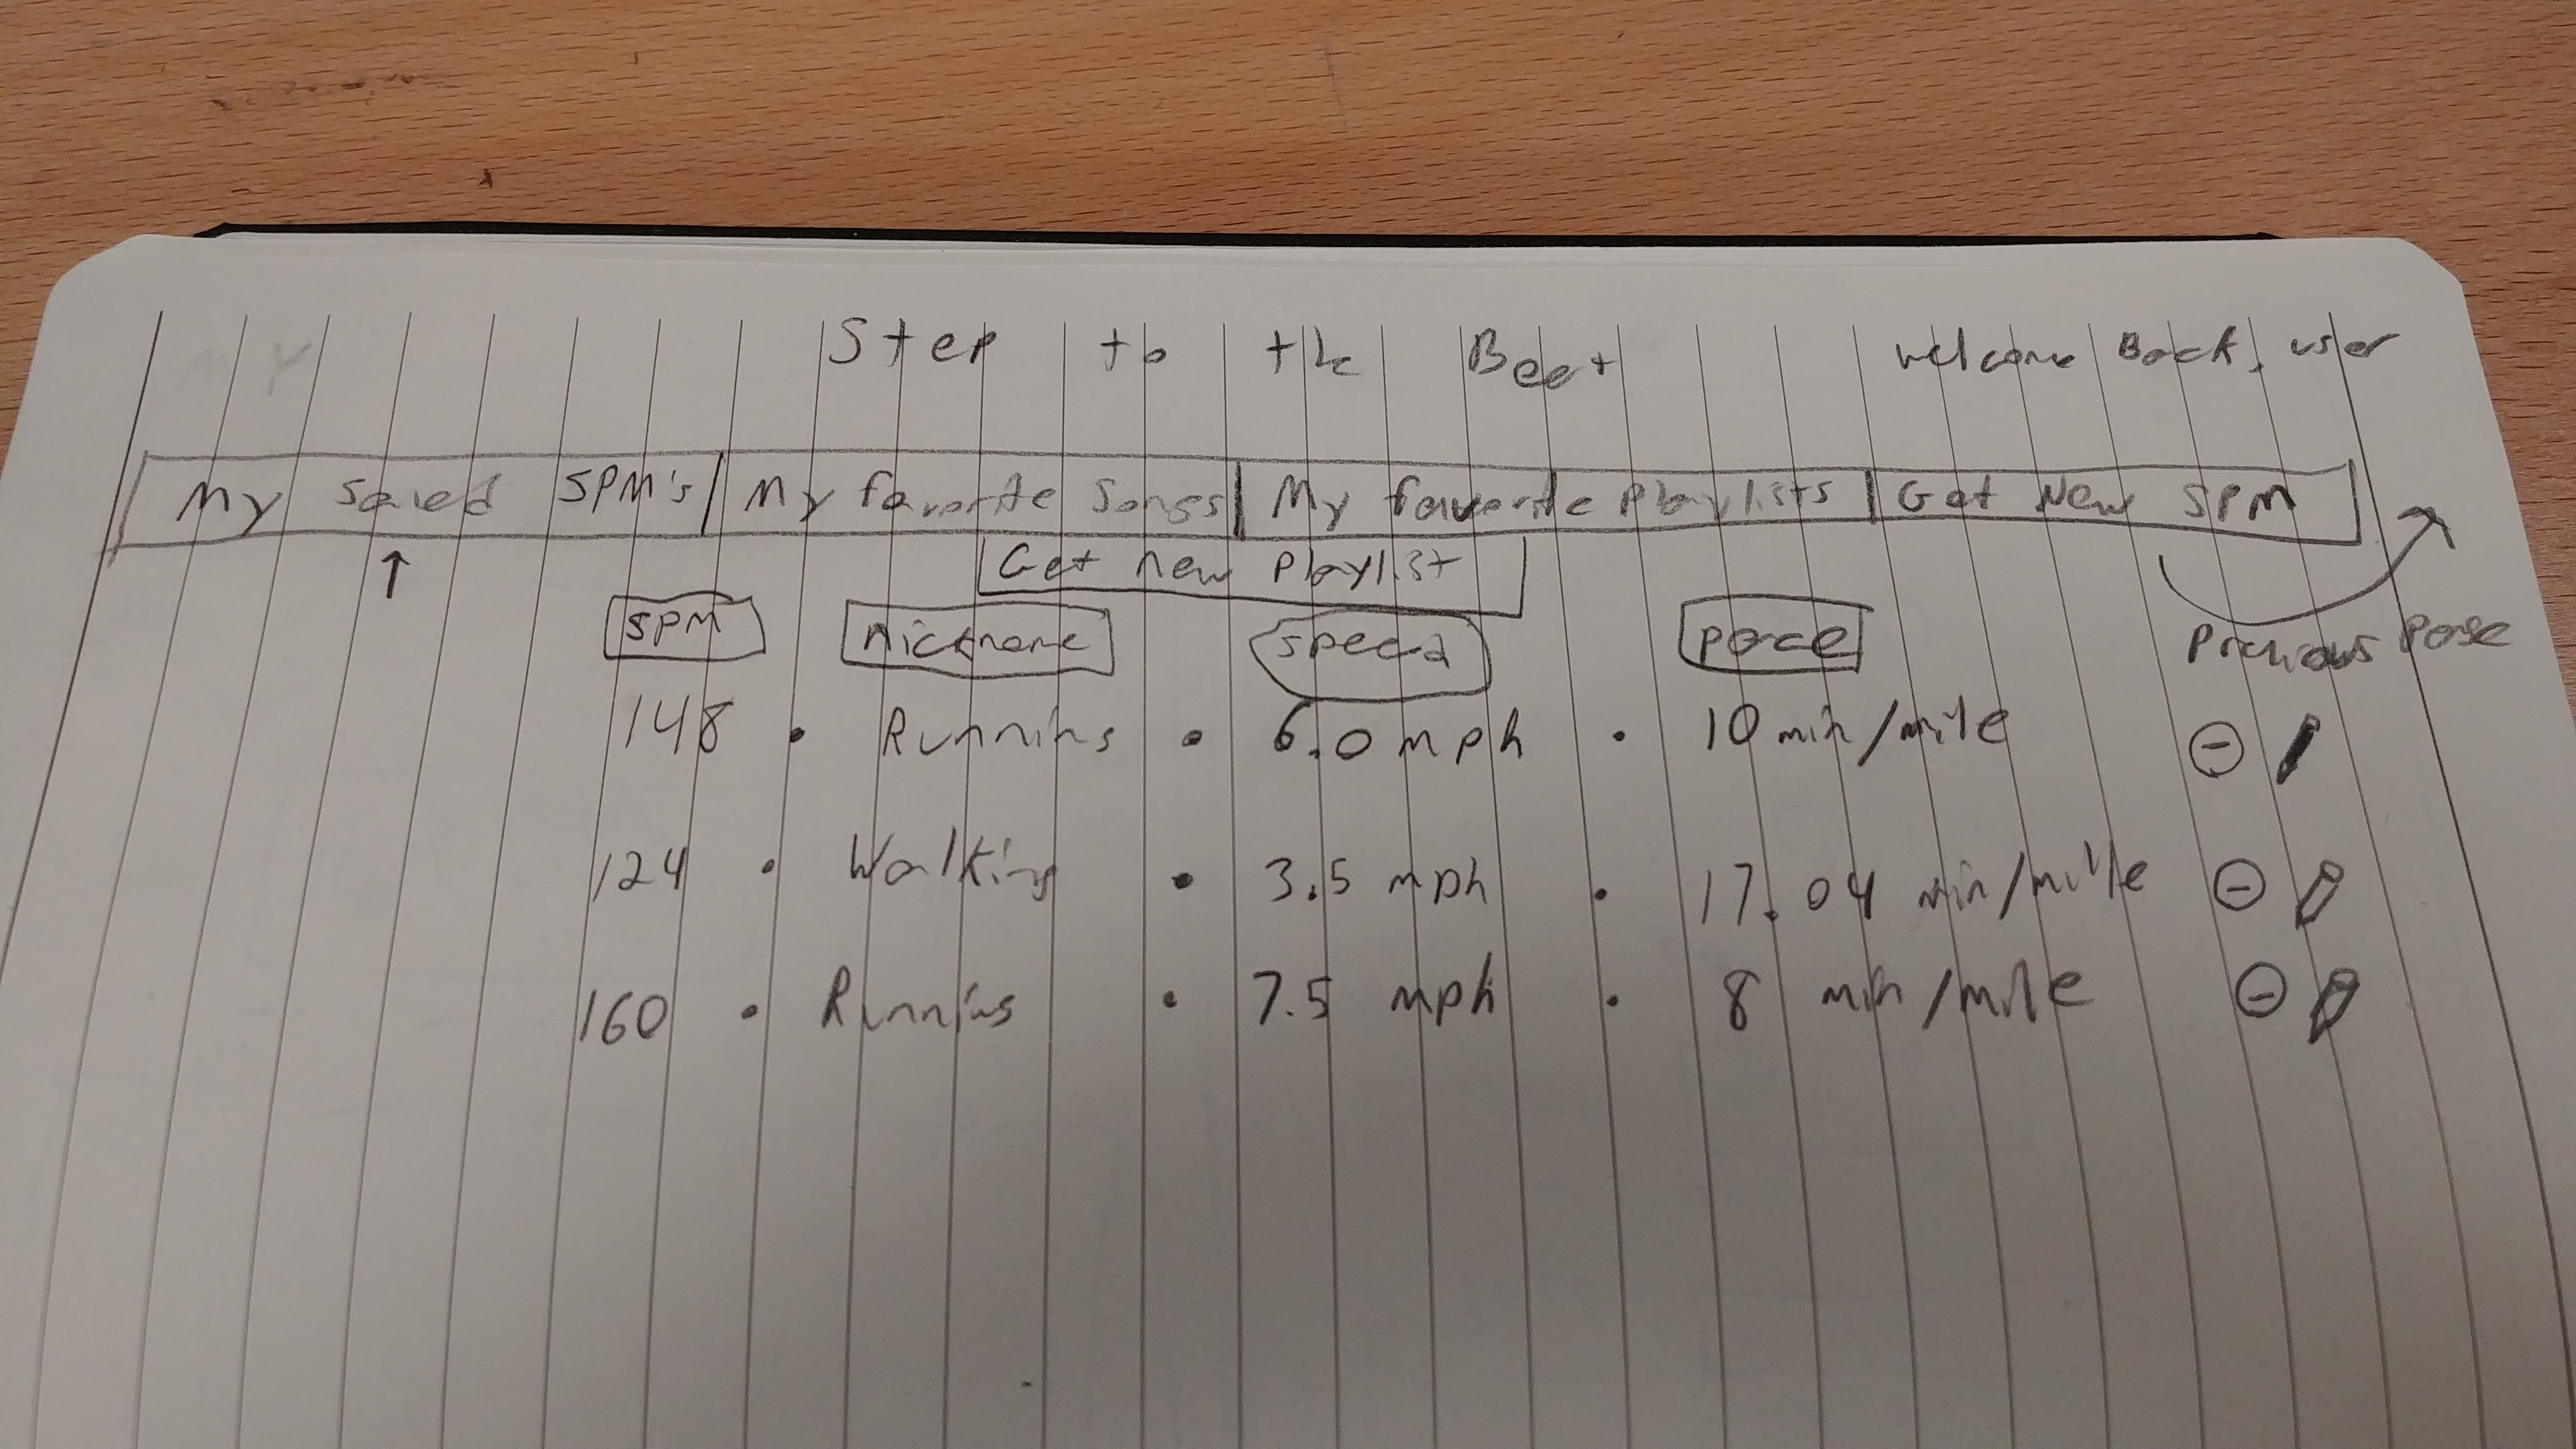 Step to the Beat welcome Back, user
My Saved SPM's | My favorite Songs | My favorite Playlists | Get New SPM
Get new Playlist
SPM nickname speed pace Previous Page
148 • Running • 6.0 mph • 10 min/mile
124 • Walking • 3.5 mph • 17.04 min/mile
160 • Running • 7.5 mph • 8 min/mile